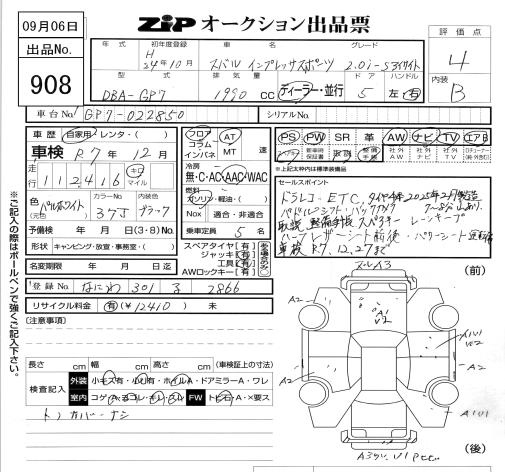 09月06日
ZIP オークション出品票
出品No.
908
評価点
4
内装
B
年式 初年度登録 車名 グレード
H 24年10月 スバル インプレッサスポーツ 2.0i-S アイサイト
型式 排気量 ドア ハンドル
DBA-GP7 1990 CC ディーラー・並行 5 左・右
車台No. GP7-022850 シリアルNo.
車歴 自家用・レンタ・( )
車検 R7年12月
走行 112,416 キロ マイル
色(元色) パールホワイト カラーNo. 37J 内装色 ブラック
予備検 年 月 日(3・8)No.
形状 キャンピング・放送・事務室・( )
名変期限 年 月 日迄
登録No. なにわ 301 る 2866
リサイクル料金 有(¥12410) 未
フロア コラム インパネ AT MT 速
冷房
無・C・AC・AAC・WAC
燃料
ガソリン・軽油・( )
Nox 適合・非適合
乗車定員 5 名
スペアタイヤ【有】
ジャッキ【有】
工具【有】
AWロックキー【有】
PS PW SR 革 AW ナビ TV エアB
※上記純正品は標準装備品
セールスポイント
ドラレコ・ETC、タイヤ4本2025年2月製造
パドルシフト バックカメラ
取説 整備手帳 スペアキー レーンキープ
ハーフレザーシート 前後・パワーシート 運転席
車検 R7.12.27まで
(注意事項)
長さ cm 幅 cm 高さ cm (車検証上の寸法)
検査記入 外装 小キズ有・小凹有・ホイルA・ドアミラーA・ワレ
室内 コゲ・穴・ヨゴレ・キレ・スレ FW トビ石・A・×要ス
トノカバーナシ
(前)
A2
A2
A2
A1U1
(後)
※ご記入の際はボールペンで強くご記入下さい。